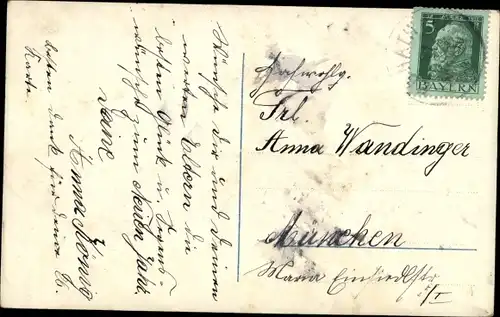 Wünsche Dir und Deinen
werten Eltern die
besten Glück u. Segens-
wünsche zum Neuen Jahr.
Deine
Anna König
besten Dank für Deine
Karte.
Frl.
Anna Wandinger
München
Maria Einsiedlstr.
5/I
5
BAYERN